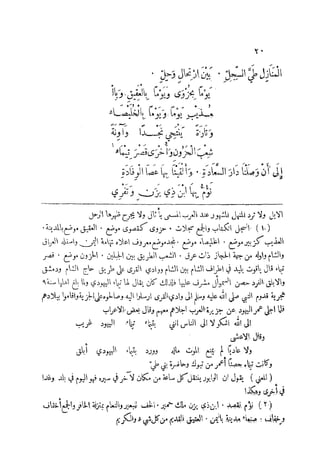 ٢٠
المنازل طيَّ السجلِّ . بَيْنَ ارْتِحَالٍ وَحَلٍّ .
يَوْمًا بِحُزْوَى وَيَوْمًا بِالْعَقِيقِ وَبِالْ
عُذَيْبِ يَوْمًا وَيَوْمًا بِالْخُلَيْصَاءِ
وَتَارَةً يَنْتَحِي نَجْدًا وَآوِنَةً
شِعْبَ الْحُزُونِ وَأُخْرَى قَصْرَ تَيْمَاءِ
إِلَى أَنْ وَصَلْنَا دَارَ السَّعَادَةِ . وَأَلْقَيْنَا بِهَا عَصَا الْوِفَادَةِ
نَؤُمُّ بِهَا ابْنَ ذِي يَزَنٍ وَتَفْرِي
الابل ولا ترد المنهل المشهور عند العرب بالخمس ولا ظهرها الرحل
(١) السجل الكتاب والجمع سجلات . حزوى كقصوى موضع . العقيق موضع بالمدينة .
العذيب كزبير موضع . الخليصاء موضع . نجد موضع معروف اعلاه تهامة اليمن واسفله العراق
والشام واوله من جهة الحجاز ذات عرق . الشعب الطريق بين الجبلين . الحزون موضع . قصر
تيماء قال ياقوت بليد في اطراف الشام بين الشام ووادي القرى على طريق حاج الشام ودمشق
والابلق الفرد حصن السموأل مشرف عليها فلذلك كان يقال لها تيماء اليهودي ولما بلغ اهلها سنة ٩
هجرية قدوم النبي صلى الله عليه وسلم الى وادي القرى ارسلوا اليه وصالحوه على الجزية واقاموا ببلادهم
فلما اجلى عمر اليهود عن جزيرة العرب اجلاهم معهم وقال بعض الاعراب
الى الله اشكو لا الى الناس انني بتيماء تيماء اليهودي غريب
وقال الاعشى
ولا عاديًا لم يمنع الموت ماله وورد بتيماء اليهودي أبلق
وكانت تيماء حصنًا أعمر من تبوك وحاضرة بني طي
(المعنى) يقول ان الوابور ينتقل كل ساعة من مكان لآخر في سيره فهو اليوم في بلد وغدا
في أخرى وهكذا
(٢) نؤم نقصد . ابن ذي يزن ملك حمير . الخف للبعير والنعام بمنزلة الحافر والجمع أخفاف
وخفاف : صنعاء مدينة باليمن . العتيق القديم من كل شيء والكريم